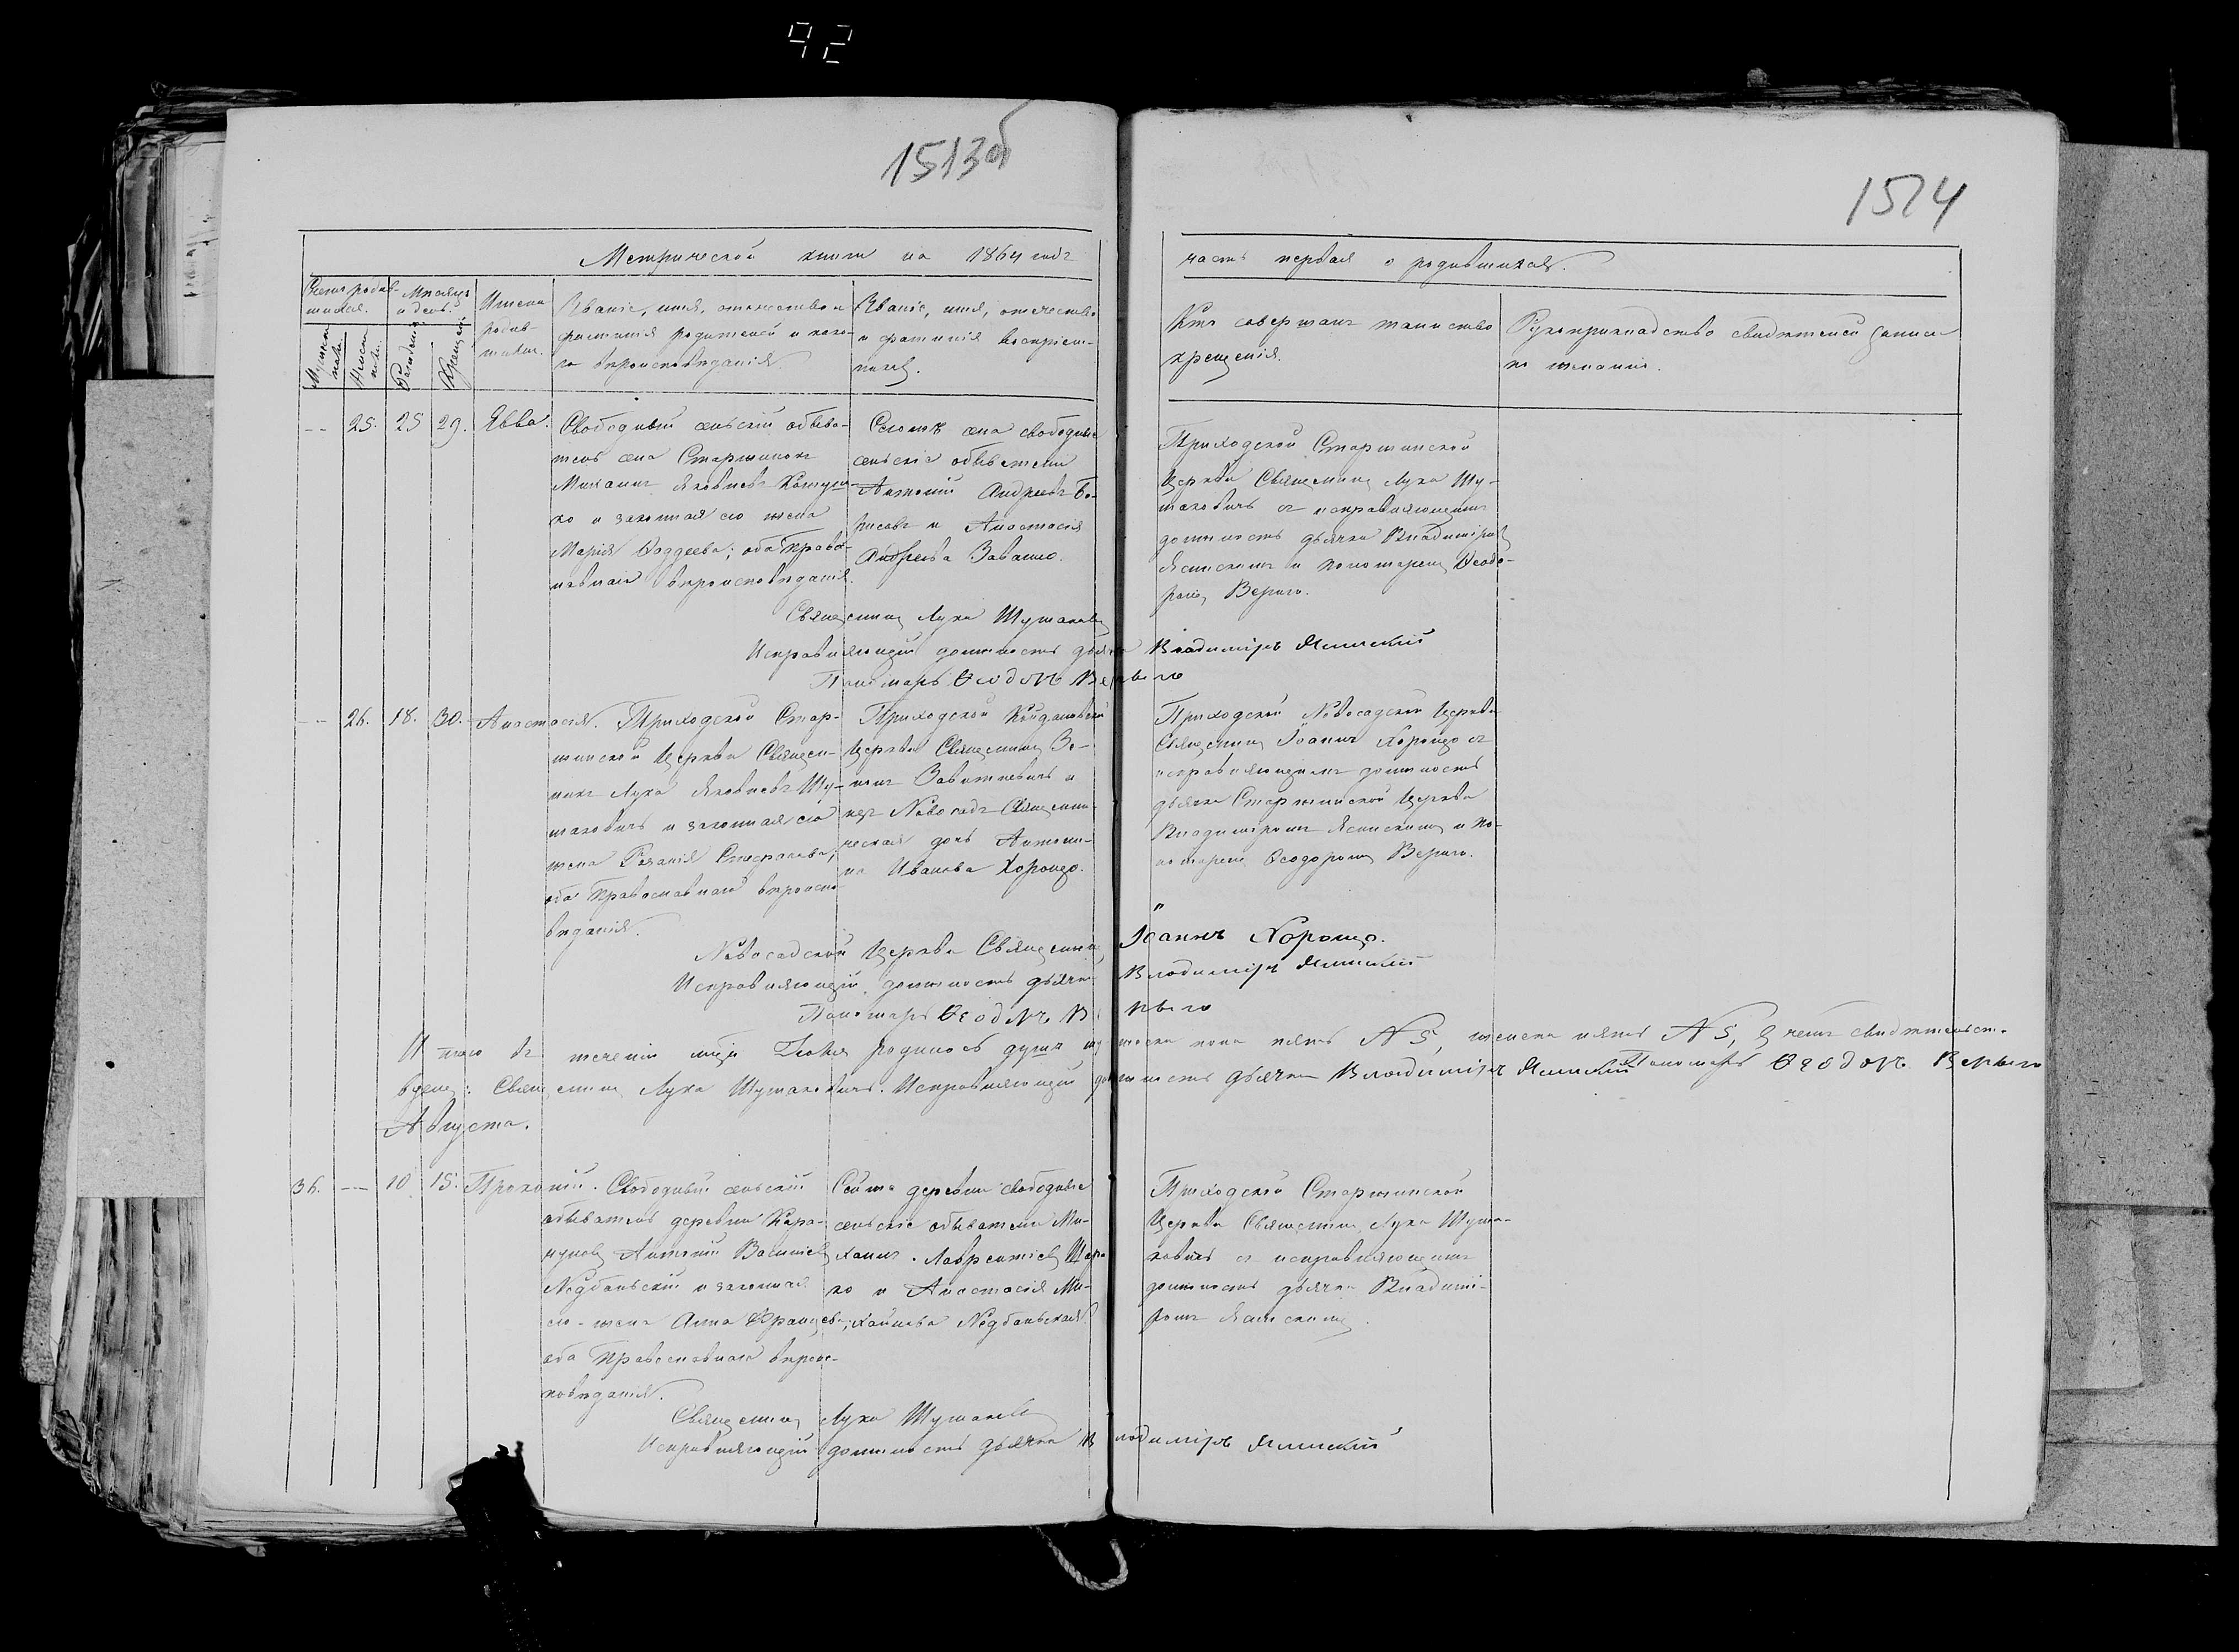 92
1513об
1514
Метрической книги на 1864 годъ
часть первая о родившихся.
Счетъ родив-
шихся.
Мѣсяцъ
и день.
Мужеска
пола.
Женска
пола.
Рожденія
Крещенія
Имена
родив-
шихся.
Званіе, имя, отчество и
фамилія родителей и како-
го вѣроисповѣданія
Званіе, имя, отчество
и фамилія воспріем-
никовъ.
Кто совершалъ таинство
крещенія.
Рукоприкладство свидѣтелей записи
по желанію.
25. 25 29. Евва.
Свободный сельскій обыва-
тель села Старжинокъ
Михаилъ Яковлевъ
и законная его жена
Марія Фаддеева; оба Право-
славнаго вѣроисповѣданія.
села свободные
сельскіе обыватели
Антоній Андреевъ Бо-
рисовъ и Анастасія
Андреева
Приходской Старжинской
Церкви Священникъ Лука Шу-
маковичъ съ исправляющимъ
должность дьячка Владиміромъ
Ялинскимъ и пономаремъ Ѳеодо-
ромъ Верыго.
Священникъ Лука Шумаковичъ
Исправляющій должность дьячка Владиміръ Ялинскій
Пономарь Ѳеодоръ Верыго
26. 18. 30. Анастасія.
Приходской Стар-
жинской Церкви Священ-
никъ Лука Яковлевъ Шу-
маковичъ и законная его
жена Стефанова;
оба Православнаго вѣроиспо-
вѣданія.
Приходской Койдановской
Церкви Священникъ Зе-
нонъ Завитневичъ и
изъ Новосадъ Священни-
ческая дочь Антони-
на Иванова Хороцео.
Приходской Новосадской Церкви
Священникъ Іоаннъ съ
исправляющимъ должность
дьячка Старжинской Церкви
Владиміромъ Ялинскимъ и по-
номаремъ Ѳеодоромъ Верыго.
Новосадской Церкви Священникъ Іоаннъ
Исправляющій должность дьячка Владиміръ Ялинскій
Пономарь Ѳеодоръ Верыго
Итого въ теченіи мѣсяца Іюля родилось душъ мужеска пола пять № 5, женска пять № 5, въ чемъ свидѣтельст-
вуемъ: Священникъ Лука Шумаковичъ. Исправляющій должность дьячка Владиміръ Ялинскій Пономарь Ѳеодоръ Верыго
Августа.
36. — 10 15.
Свободный сельскій
обыватель деревни
Антоній Васильевъ
Недбальскій и законная
его жена Анна
оба Православнаго вѣроис-
повѣданія.
Сей же деревни свободные
сельскіе обыватели Ми-
хаилъ Лаврентіевъ
и Анастасія Ми-
хайлова Недбальская.
Приходской Старжинской
Церкви Священникъ Лука Шума-
ковичъ съ исправляющимъ
должность дьячка Владимі-
ромъ Ялинскимъ.
Священникъ Лука Шумаковичъ
Исправляющій должность дьячка Владиміръ Ялинскій